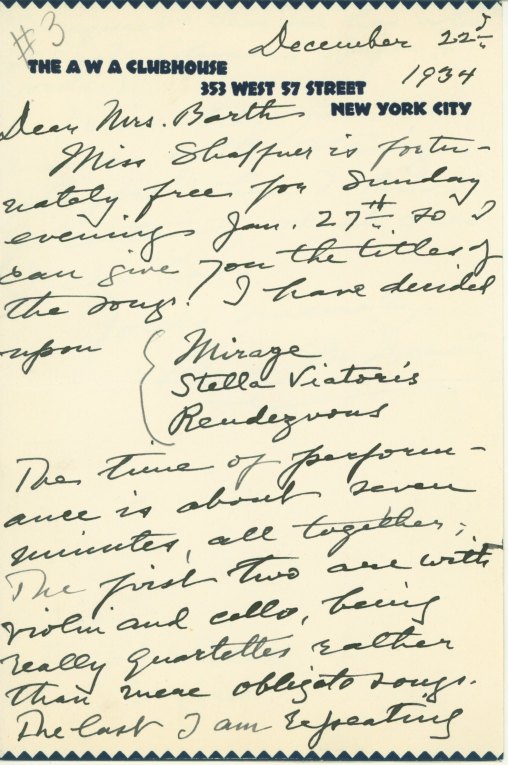 #3
December 22d
THE A W A CLUBHOUSE
1934
353 WEST 57 STREET
NEW YORK CITY
Dear Mrs. Barth
Miss Shaffner is fortu-
nately free for Sunday
evening Jan. 27th so I
can give you the titles of
the songs. I have decided
upon
Mirage
Stella Viatoris
Rendezvous
The time of perform-
ance is about seven
minutes, all together;
The first two are with
violin and cello, being
really quartettes rather
than mere obligato songs.
The last I am repeating